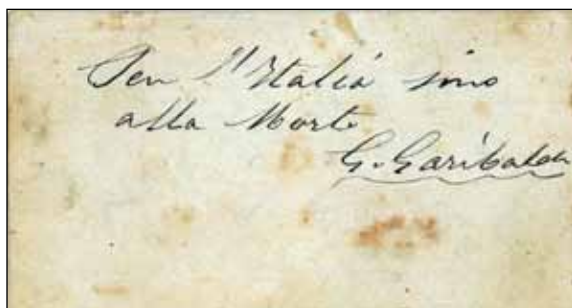 Per l'Italia sino
alla Morte
G. Garibaldi